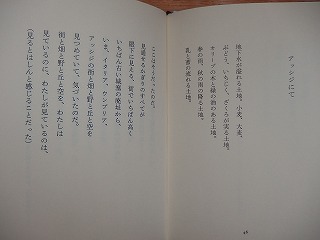 アッシジにて
地下水が溢れる土地。小麦、大麦、
ぶどう、いちじく、ざくろが実る土地。
オリーブの木と緑の油のある土地。
春の雨、秋の雨の降る土地。
乳と蜜の流れる土地。
ここはそうだったのだ。
見渡せるかぎりのすべてが
眼下に見える、街でいちばん高く
いちばん古い城塞の廃址から、
いま、イタリア、ウンブリア、
アッシジの街と畑と野と丘と空を
見つめていて、気づいたのだ。
街と畑と野と丘と空を、わたしは
見ているのに、わたしが見ているのは、
（見るとはしんと感じることだった）